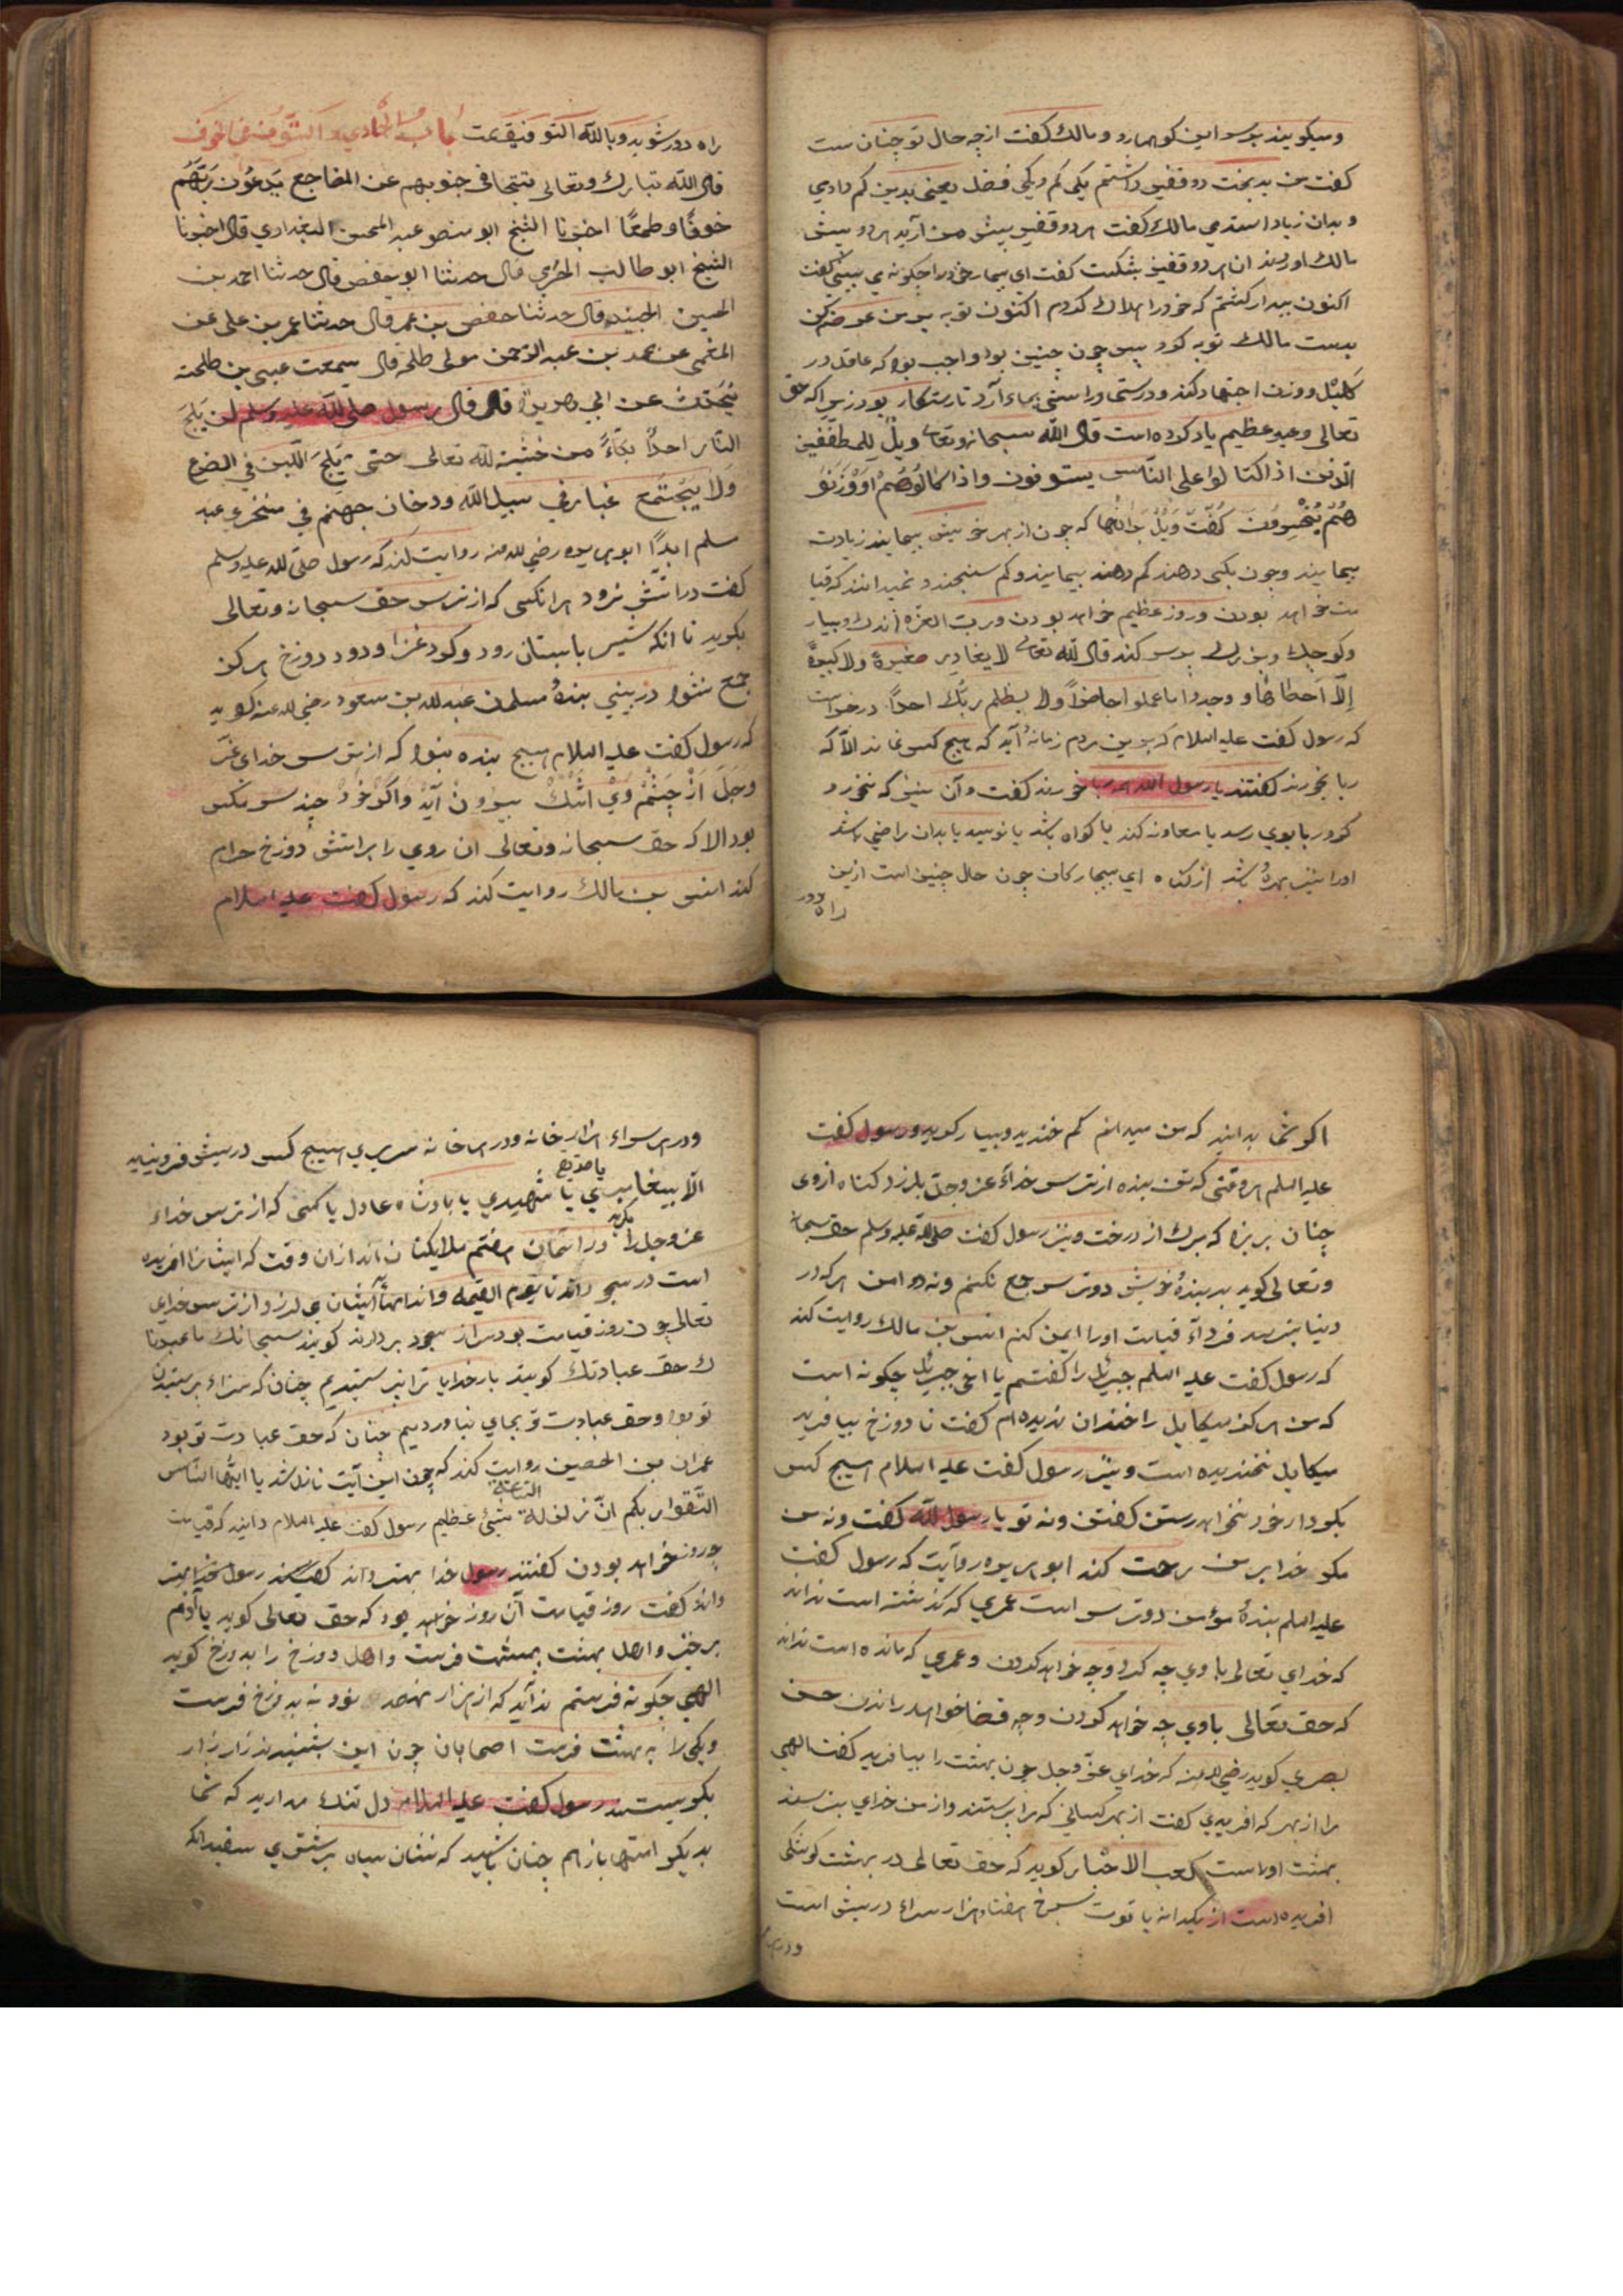 و میکویند بر سر این کوهها رو و مالک کفت از چه حال تو چنان ست
کفت من بدبخت دو قفیز داشتم یکی کم و یکی فضل یعنی بدین کم دادی
و بدان زیاد استدمی مالک کفت هر دو قفیز پیش من آرید هر دو پیش
مالک اوردند ان هر دو قفیز بشکست کفت ای بیمار خود را چکونه می بینی کفت
اکنون بیدار کشتم که خود را هلاک کردم اکنون توبه بر من عرضه کن
بدست مالک توبه کرد پس چون چنین بود واجب بود که عاقل در
کیل و وزن اجتهاد کند و درستی و راستی بجاء آرد تا رستکار بود زیرا که حق
تعالی وعید عظیم یاد کرده است قال الله سبحانه وتعالی ویل للمطففین
الذین اذا اکتالوا علی الناس یستوفون واذا کالوهم او وزنو
هم یخسرون کفت ویل بر آنها که چون از بهر خویش پیمایند زیادت
پیمایند و چون بکسی دهند کم دهند پیمایند و کم سنجند و نمیدانند که قیا
مت خواهد بودن و روز عظیم خواهد بودن و رب العزه اندک و بسیار
و کوچک و بزرک پرسد کند قال الله تعالی لا یغادر صغیرة ولا کبیرة
الا احصاها و وجدوا ما عملوا حاضرا ولا یظلم ربک احدا در خبر است
که رسول کفت علیه السلام که برین مردم زمانه آید که هیچ کس نماند الا که
ربا بخورند کفتند یا رسول الله همه ربا خورند کفت و آن نیز که نخورد
کرد ربا بوی رسد یا معاونه کند یا کواه باشد یا نویسد یا بدان راضی باشد
او را نیز بهره باشد از کناه ای بیچارکان چون حال چنین است ازین
راه دور
راه دور شوید وبالله التوفیق تمت باب الحادی و الستون فی الخوف
قال الله تبارک وتعالی تتجافی جنوبهم عن المضاجع یدعون ربهم
خوفا وطمعا اخبرنا الشیخ ابو منصور عبد المحسن البغدادی قال اخبرنا
الشیخ ابو طالب الحربی قال حدثنا ابو حفص قال حدثنا احمد بن
الحسین الجنید قال حدثنا حفص بن عمر قال حدثنا عمر بن علی عن
عن محمد بن عبد الرحمن مولی طلحه قال سمعت عیسی بن طلحه
یحدث عن ابی هریرة قال قال رسول صلی الله علیه وسلم لن یلج
النار احدا بکاء من خشیة الله تعالی حتی یلج اللبن فی الضرع
ولا یجتمع غبار فی سبیل الله ودخان جهنم فی منخری عبد
مسلم ابدا ابو هریره رضی الله عنه روایت کند که رسول صلی الله علیه وسلم
کفت در آتش نرود هر انکسی که از ترس حق سبحانه وتعالی
بکرید تا انکه شیر با پستان رود و کرد غزا و دود دوزخ هرکز
جمع نشود در بینی بنده مسلمان عبد الله بن مسعود رضی الله عنه کوید
که رسول کفت علیه السلام هیچ بنده نبود که از ترس خدای عز
وجل از چشم وی اشک بیرون آید واکر خود چند سر مکس
بود الا که حق سبحانه وتعالی ان روی را بر اتش دوزخ حرام
کند انس بن مالک روایت کند که رسول کفت علیه السلام
اکر شما بدانید که من میدانم کم خندید و بسیار کریید و رسول کفت
علیه السلم هر وقتی که تن بنده از ترس خداء عز وجل بلرزد کناه از وی
چنان بریزد که برک از درخت و نیز رسول کفت صلی الله علیه وسلم حق سبحانه
وتعالی کوید بر بنده خویش دو ترس جمع نکنم و نه دو امن هرکه در
دنیا بترسد فرداء قیامت او را ایمن کنم انس بن مالک روایت کند
که رسول کفت علیه السلم جبریل را کفتم یا اخی جبریل چکونه است
که من هرکز میکایل را خندان ندیده ام کفت تا دوزخ بیافرید
میکایل نخندیده است و نیز رسول کفت علیه السلام هیچ کس
بکردار خود نخواهد رستن کفتن ونه تو یا رسول الله کفت ونه من
مکر خدا بر من رحمت کند ابو هریره روایت که رسول کفت
علیه السلم بنده مؤمن دو ترس است عمری که کذشته است نداند
که خدای تعالی با وی چه کرد وچه خواهد کردن و عمری که مانده است نداند
که حق تعالی با وی چه خواهد کردن وچه قضا خواهد راندن حسن
بصری کوید رضی الله عنه که خدای عز وجل چون بهشت را بیافرید کفت الهی
مرا از بهر که افریدی کفت از بهر کسانی که مرا پرستند و از من خدای بترسند
بهشت اوراست کعب الاحبار کوید که حق تعالی در بهشت کوشکی
افریده است از یکدانه یاقوت سرخ هفتاد هزار سراء در پیش است
ودر هر
ودر هر سراء هزار خانه ودر هر خانه سریری هیچ کس در پیش فرو نیاید
الا پیغامبری یا صدیقی یا شهیدی یا پادشاه عادل یا کسی که از ترس خداء
عز وجل بکرید را ودر آسمان هفتم ملایکتان اند از ان وقت که ایشانرا افریده
است در سجود اند تا یوم القیمه واندامهاء ایشان می لرزد از ترس خدای
تعالی چون روز قیامت بود سر از سجود بردارند کویند سبحانک ما عبدنا
ک حق عبادتک کویند بار خدایا ترا نپرستیدیم چنان که سزاء پرستیدن
تو بود وحق عبادت تو بجای نیاوردیم چنان که حق عبادت تو بود
عمران بن الحصین روایت کند که چون این آیت نازل شد یا ایها الناس
اتقوا ربکم ان زلزلة الساعة شیئ عظیم رسول کفت علیه السلام دانید که قیامت
چه روز خواهد بودن کفتند رسول خدا بهتر داند کفتند رسول خدا بهتر
داند کفت روز قیامت آن روز خواهد بود که حق تعالی کوید یا آدم
برخیز واهل بهشت ببهشت فرست واهل دوزخ را بدوزخ کوید
الهی چکونه فرستم ندا آید که از هزار نهصد نود نه بدوزخ فرست
ویکی را به بهشت فرست اصحابان چون این بشنیدند زار زار
بکریستند رسول کفت علیه السلام دل تنک مدارید که شما
بدیکر امتها باز هم چنان باشید که نشان سیاه بر شتری سفید انکه